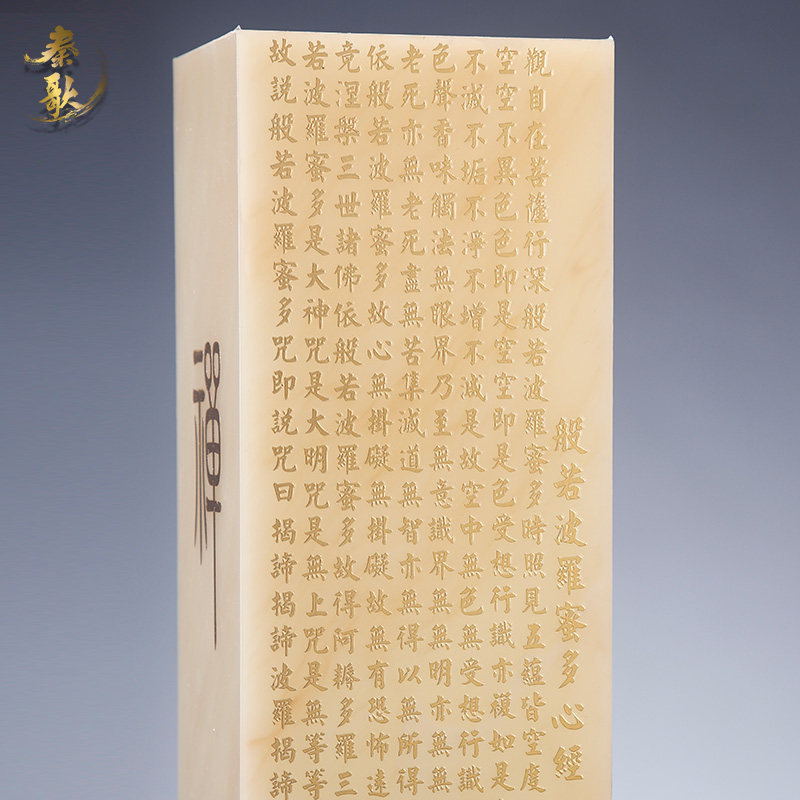 秦歌
般若波羅蜜多心經
觀自在菩薩行深般若波羅蜜多時照見五蘊皆空度
空空不異色色即是空空即是色受想行識亦複如是
不滅不垢不淨不增不減是故空中無色無受想行識
色聲香味觸法無眼界乃至無意識界無無明亦無無
老死亦無老死盡無苦集滅道無智亦無得以無所得
依般若波羅蜜多故心無掛礙無掛礙故無有恐怖遠
竟涅槃三世諸佛依般若波羅蜜多故得阿耨多羅三
若波羅蜜多是大神咒是大明咒是無上咒是無等等
故說般若波羅蜜多咒即說咒曰揭諦揭諦波羅揭諦
禪